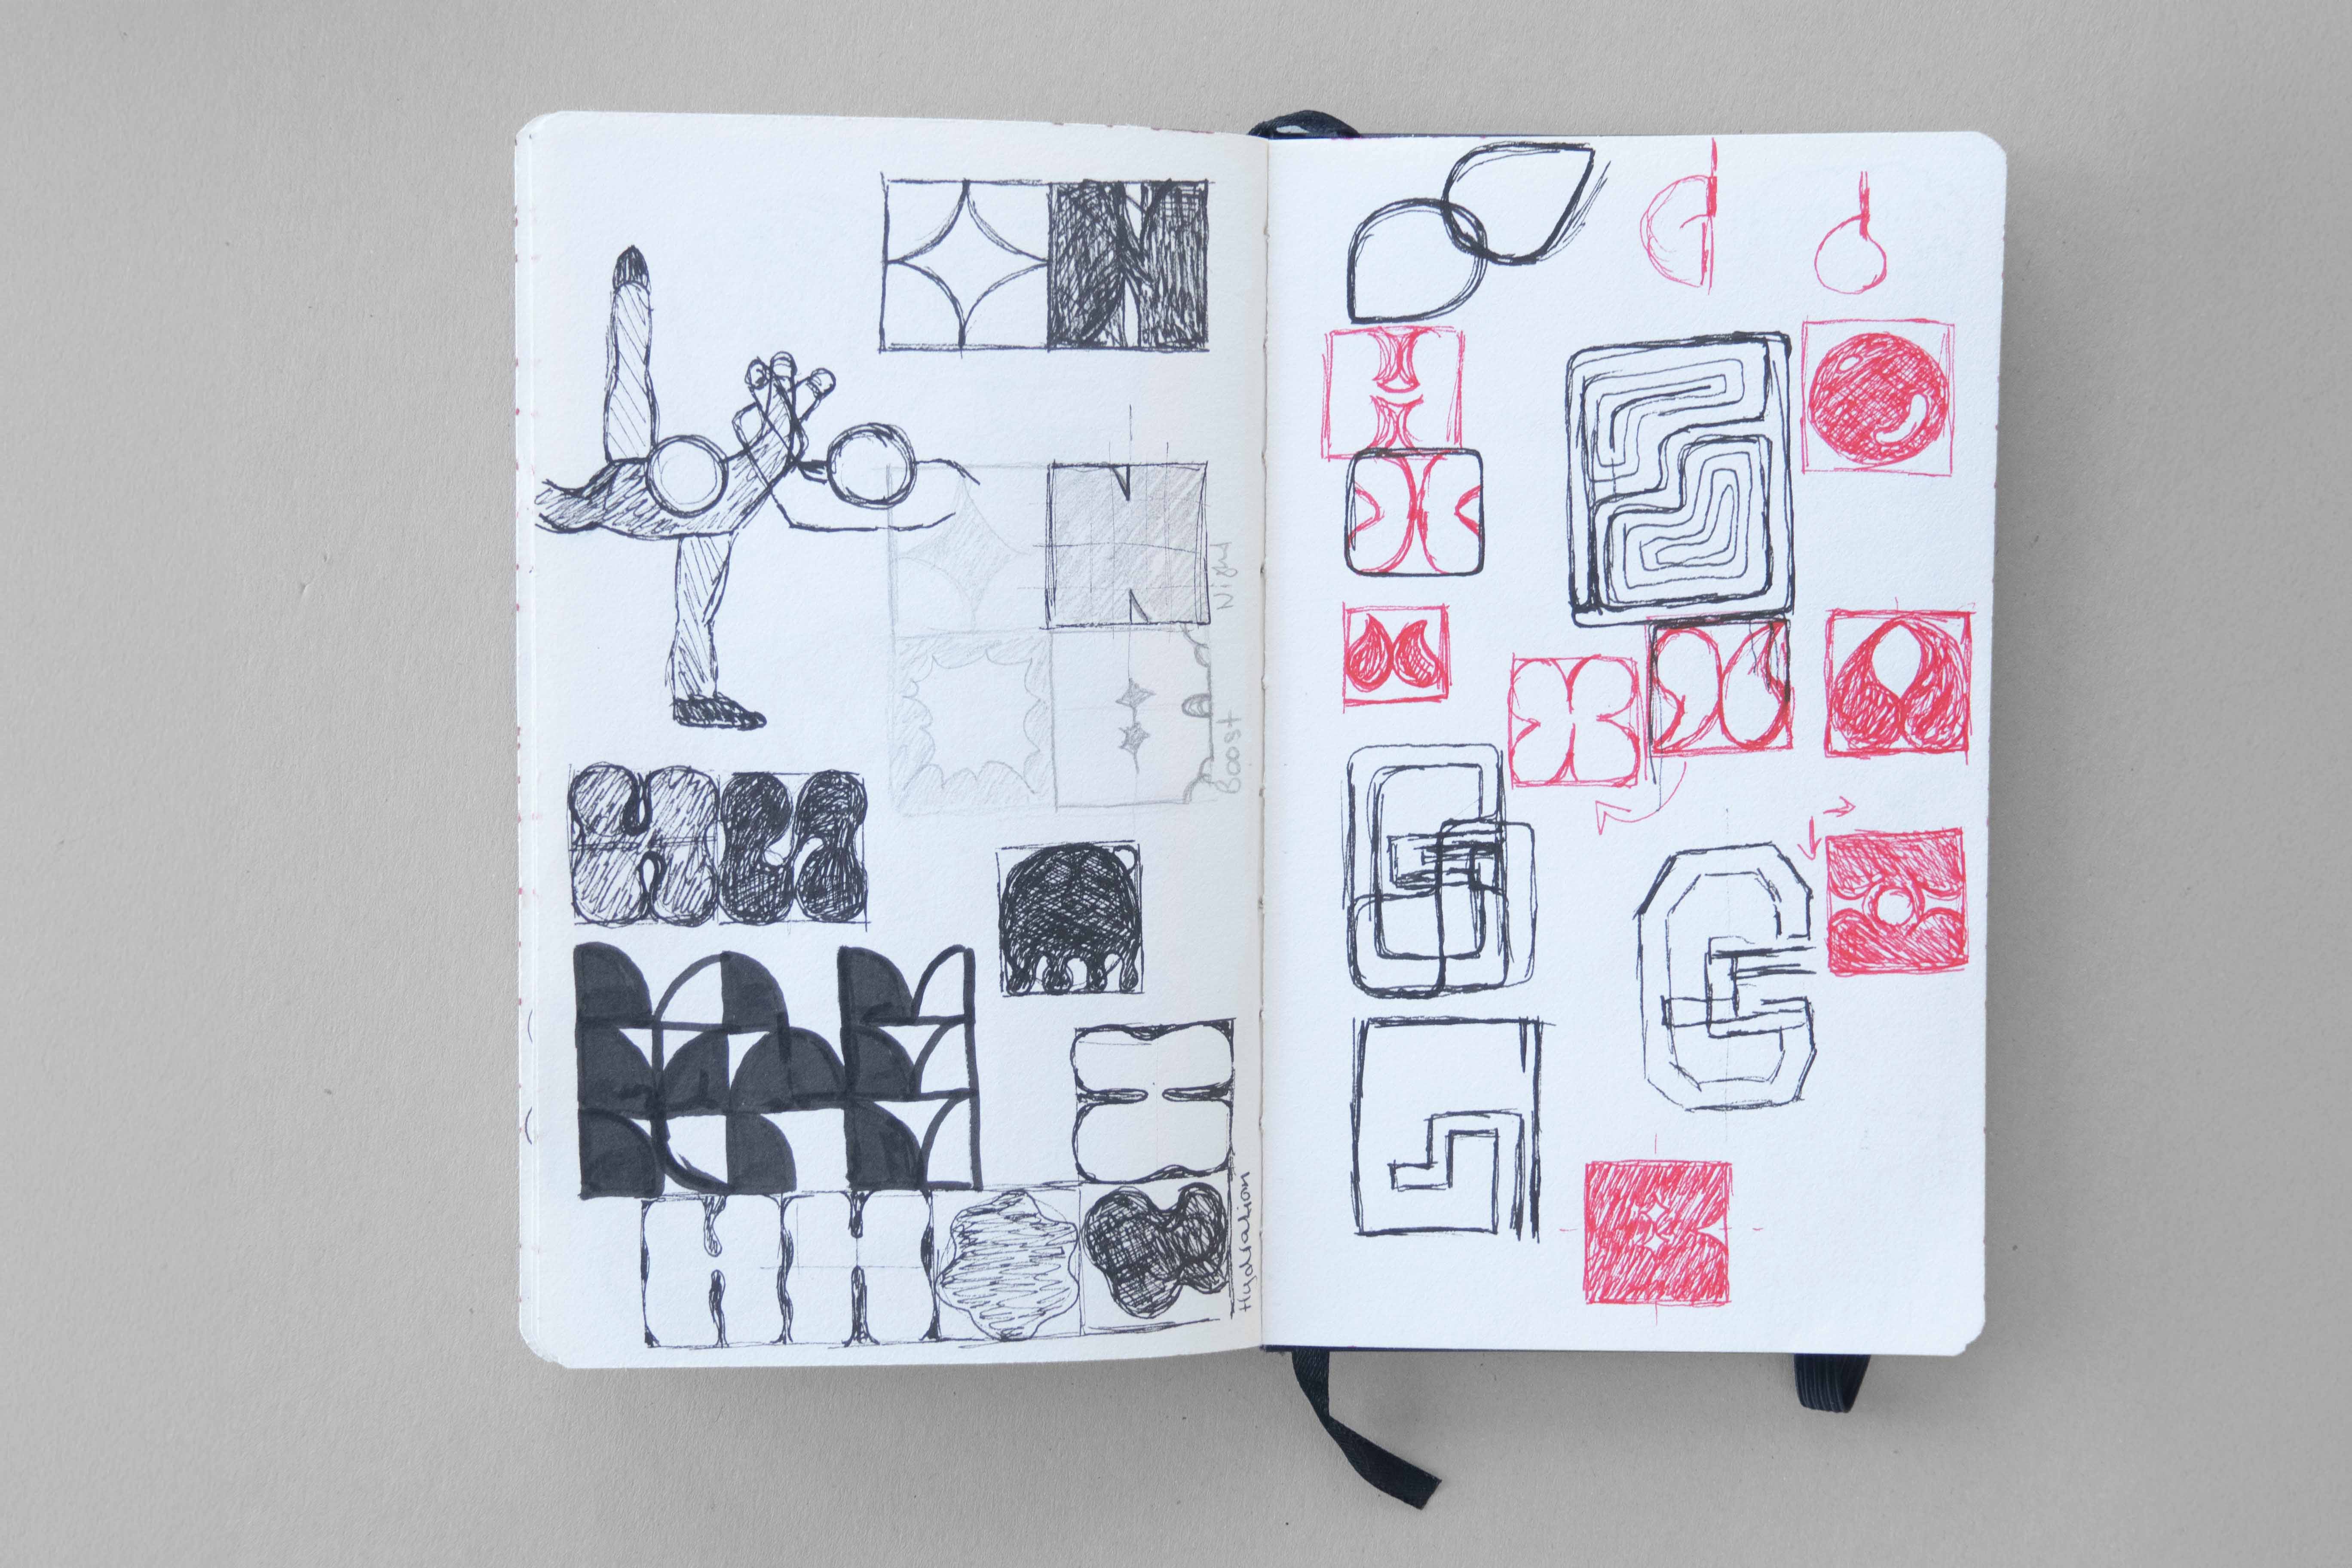 Night
Boost
Hydration